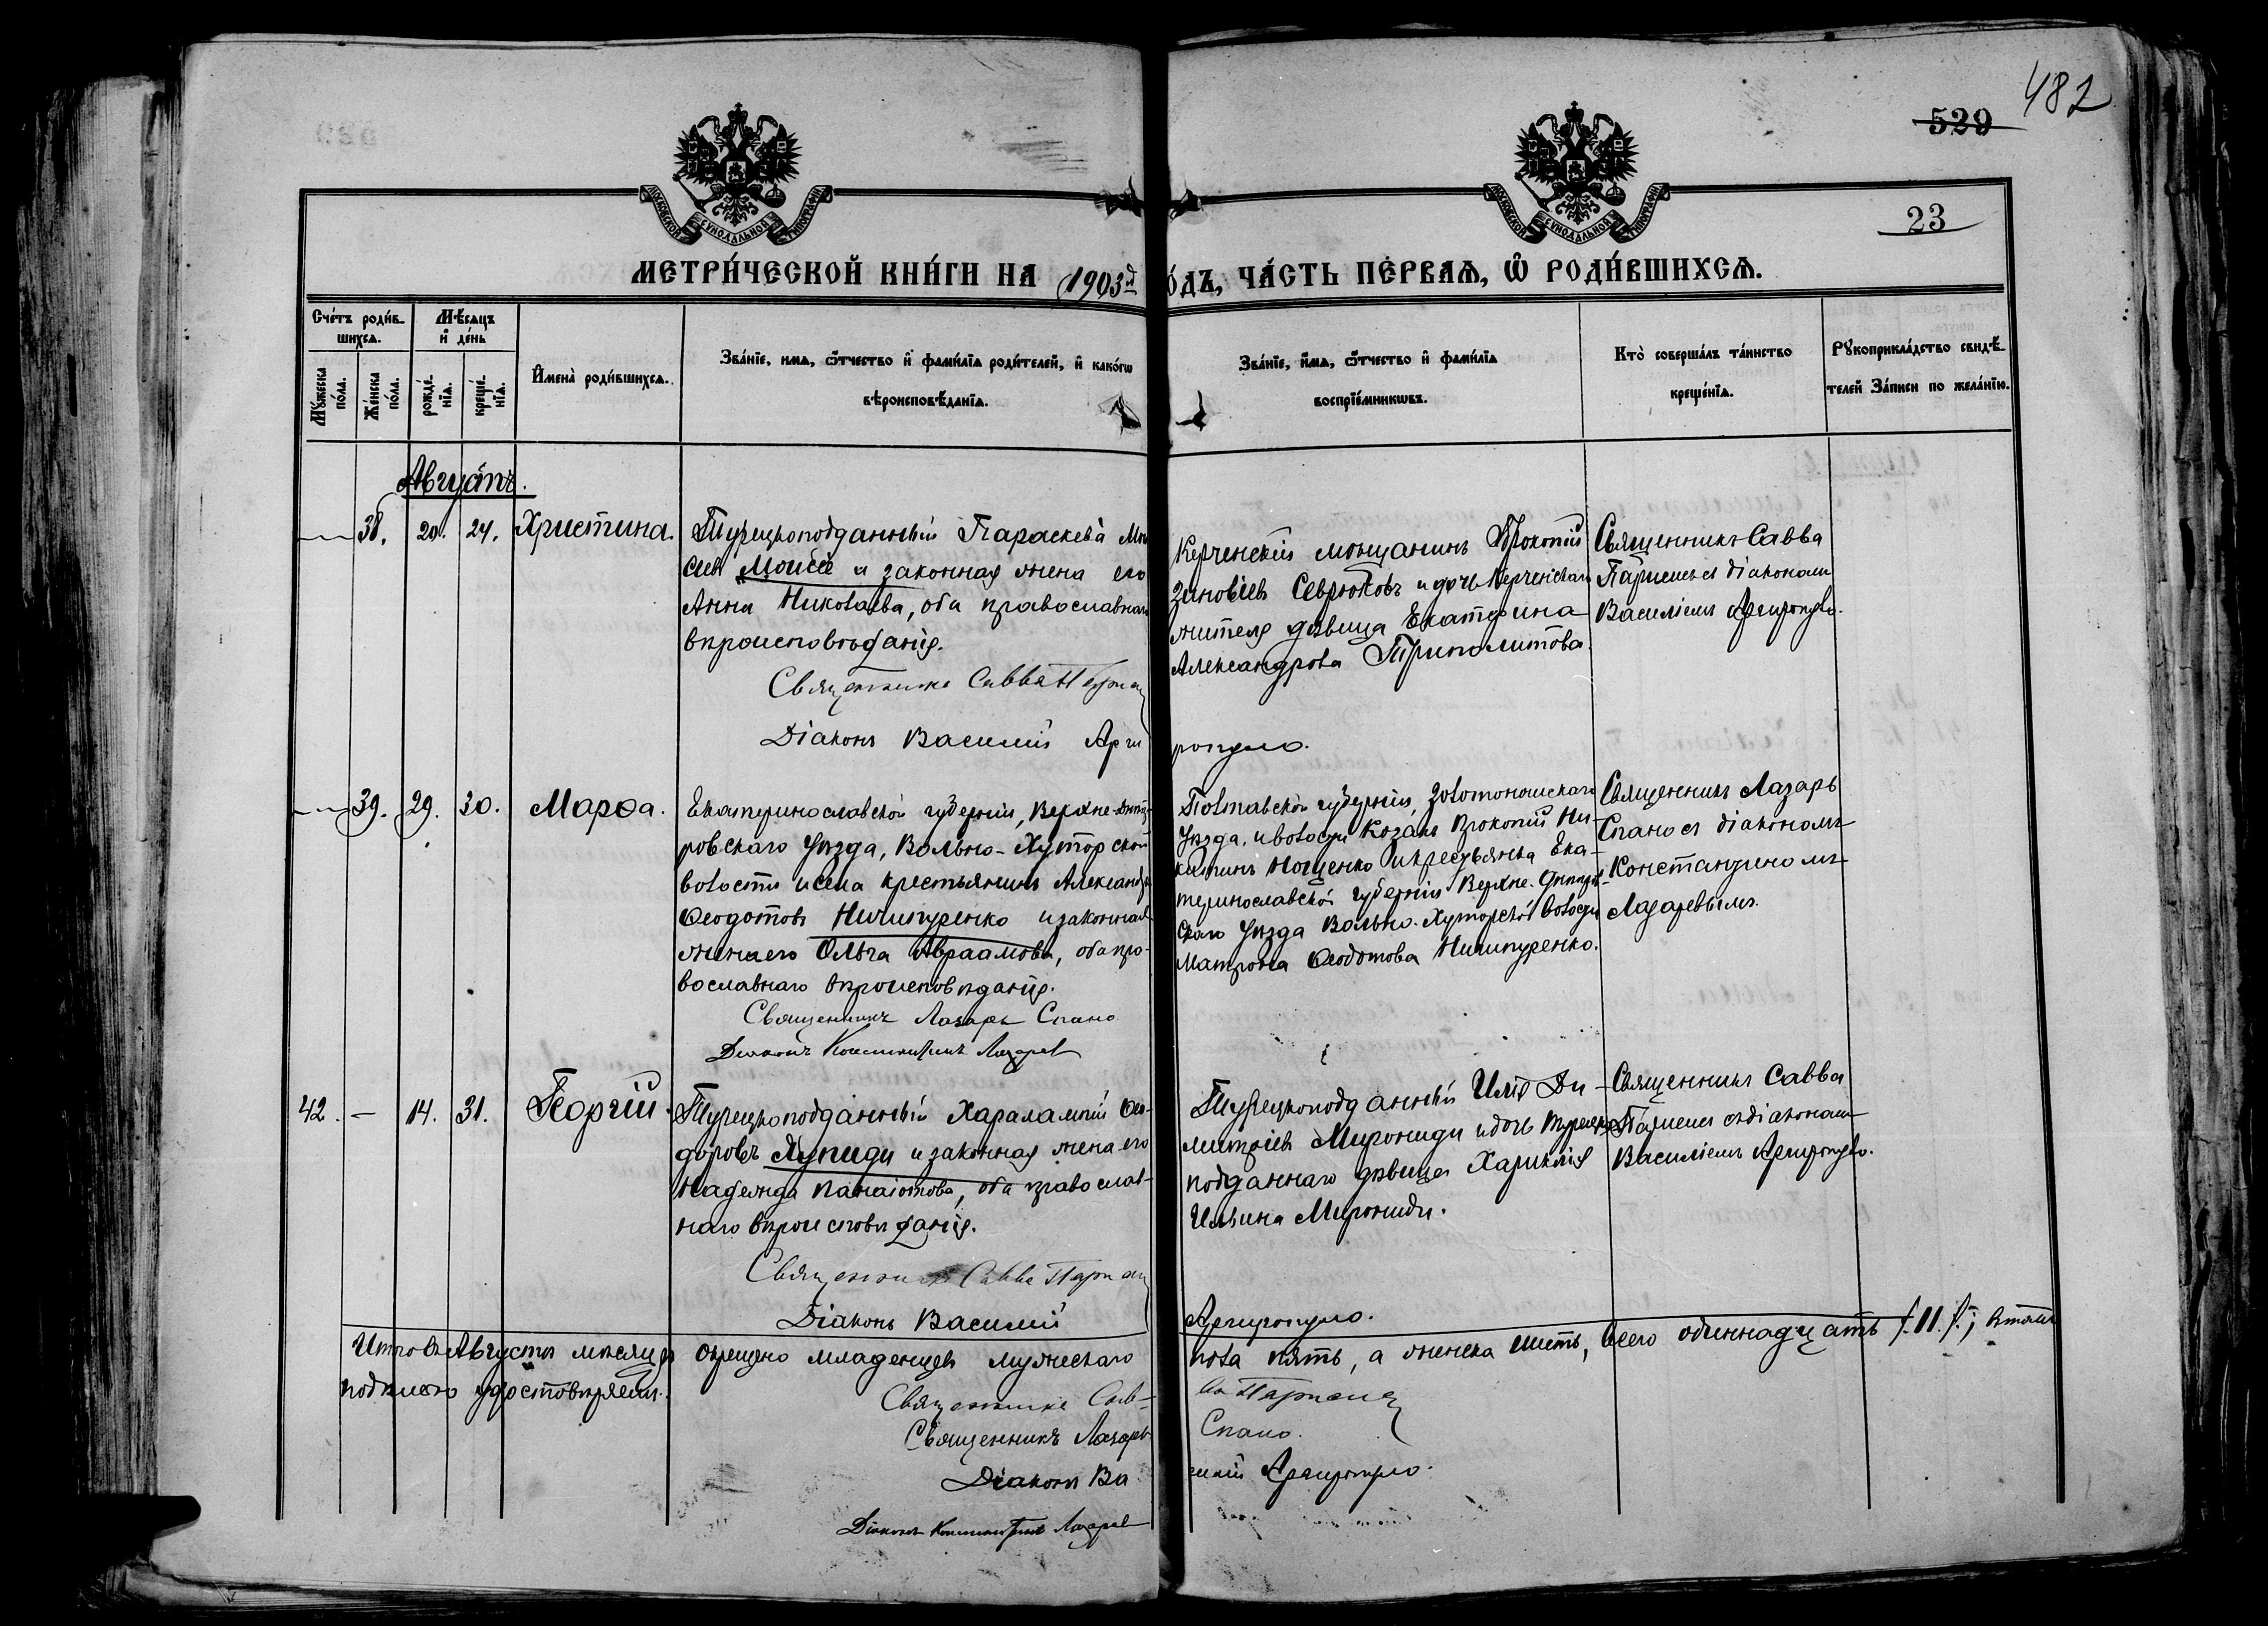 482
529
23
МОСКОВСКОЙ СѴНОДАЛЬНОЙ ТИПОГРАФІИ
МОСКОВСКОЙ СѴНОДАЛЬНОЙ ТИПОГРАФІИ
МЕТРИ́ЧЕСКОЙ КНИ́ГИ НА 1903й
О́ДЪ, ЧА́СТЬ ПЕ́РВАЯ, Ѡ҆ РОДИ́ВШИХСЯ.
Сче́тъ роди́в-
шихся.
Мѣ́сяцъ
и҆ де́нь
Му́жеска по́ла.
Же́нска по́ла.
рожде́-нїя.
креще́-нїя.
И҆мена̀ роди́вшихся.
Зва́нїе, имя, ѻ҆́тчество и҆ фами́лїя роди́телей, и҆ како́гѡ
вѣроисповѣ́данїя.
Зва́нїе, и҆́мя, ѻ҆́тчество и҆ фами́лїя
воспрїе́мникѡвъ.
Кто̀ соверша́лъ та́инство
креще́нїя.
Рꙋкоприкла́дство свидѣ́-
телей За́писи по жела́нїю.
Августъ.
38. 20. 24. Христина.
Турецкоподданный Параскева Мои
сеев Моисе и законная жена его
Анна Николаева, оба православнаго
вѣроисповѣданія.
Священникъ Савва Пармац
Діаконъ Василій Арги
Керченскій мѣщанинъ Прокопій
Зиновіевъ Севрюковъ и дочь Керченскаго
жителя дѣвица Екатерина
Александрова Триполитова.
ропуло.
Священникъ Савва
съ діакономъ
Василіемъ Аргиропуло.
39. 29. 30. Марѳа.
Екатеринославской губерніи, Верхне-Днѣп-
ровскаго уѣзда, Вольно-Хуторской
волости и села крестьянинъ Александръ
Ѳеодотовъ Ничипуренко и законная
жена его Ольга Авраамова, оба пра-
вославнаго вѣроисповѣданія.
Священникъ Лазарь Спано
Діаконъ Константинъ Лазарев
Полтавской губерніи, Золотоношскаго
уѣзда, и волости Козакъ Прокопій Ни-
китинъ Нощенко и крестьянка Ека-
теринославской губерніи Верхне-Днѣпров-
скаго уѣзда Вольно-Хуторской волости
Матрона Ѳеодотова Ничипуренко.
Священникъ Лазарь
Спано съ діакономъ
Константиномъ
Лазаревымъ.
42. — 14. 31. Георгій.
Турецкоподданный Харалампій Ѳео-
доровъ Лупиди и законная жена его
Надежда Панаіотова, оба православ-
наго вѣроисповѣданія.
Священникъ Савва Пармац
Діаконъ Василій
Турецкоподданный Илія Ди-
митріевъ Мирониди и дочь Турецко
подданнаго дѣвица Хариклія
Ильина Мирониди.
Аргиропуло.
Священникъ Савва
съ діакономъ
Василіемъ Аргиропуло.
Итого въ Августѣ мѣсяцѣ окрещено младенцевъ мужескаго
пола пять, а женска шесть, всего одиннадцать /.11./.; въ томъ
подписью удостовѣряемъ.
Священникъ Сав-
ва Пармац
Священникъ Лазарь
Спано.
Діаконъ Ва
силій Аргиропуло.
Діаконъ Константинъ Лазарев